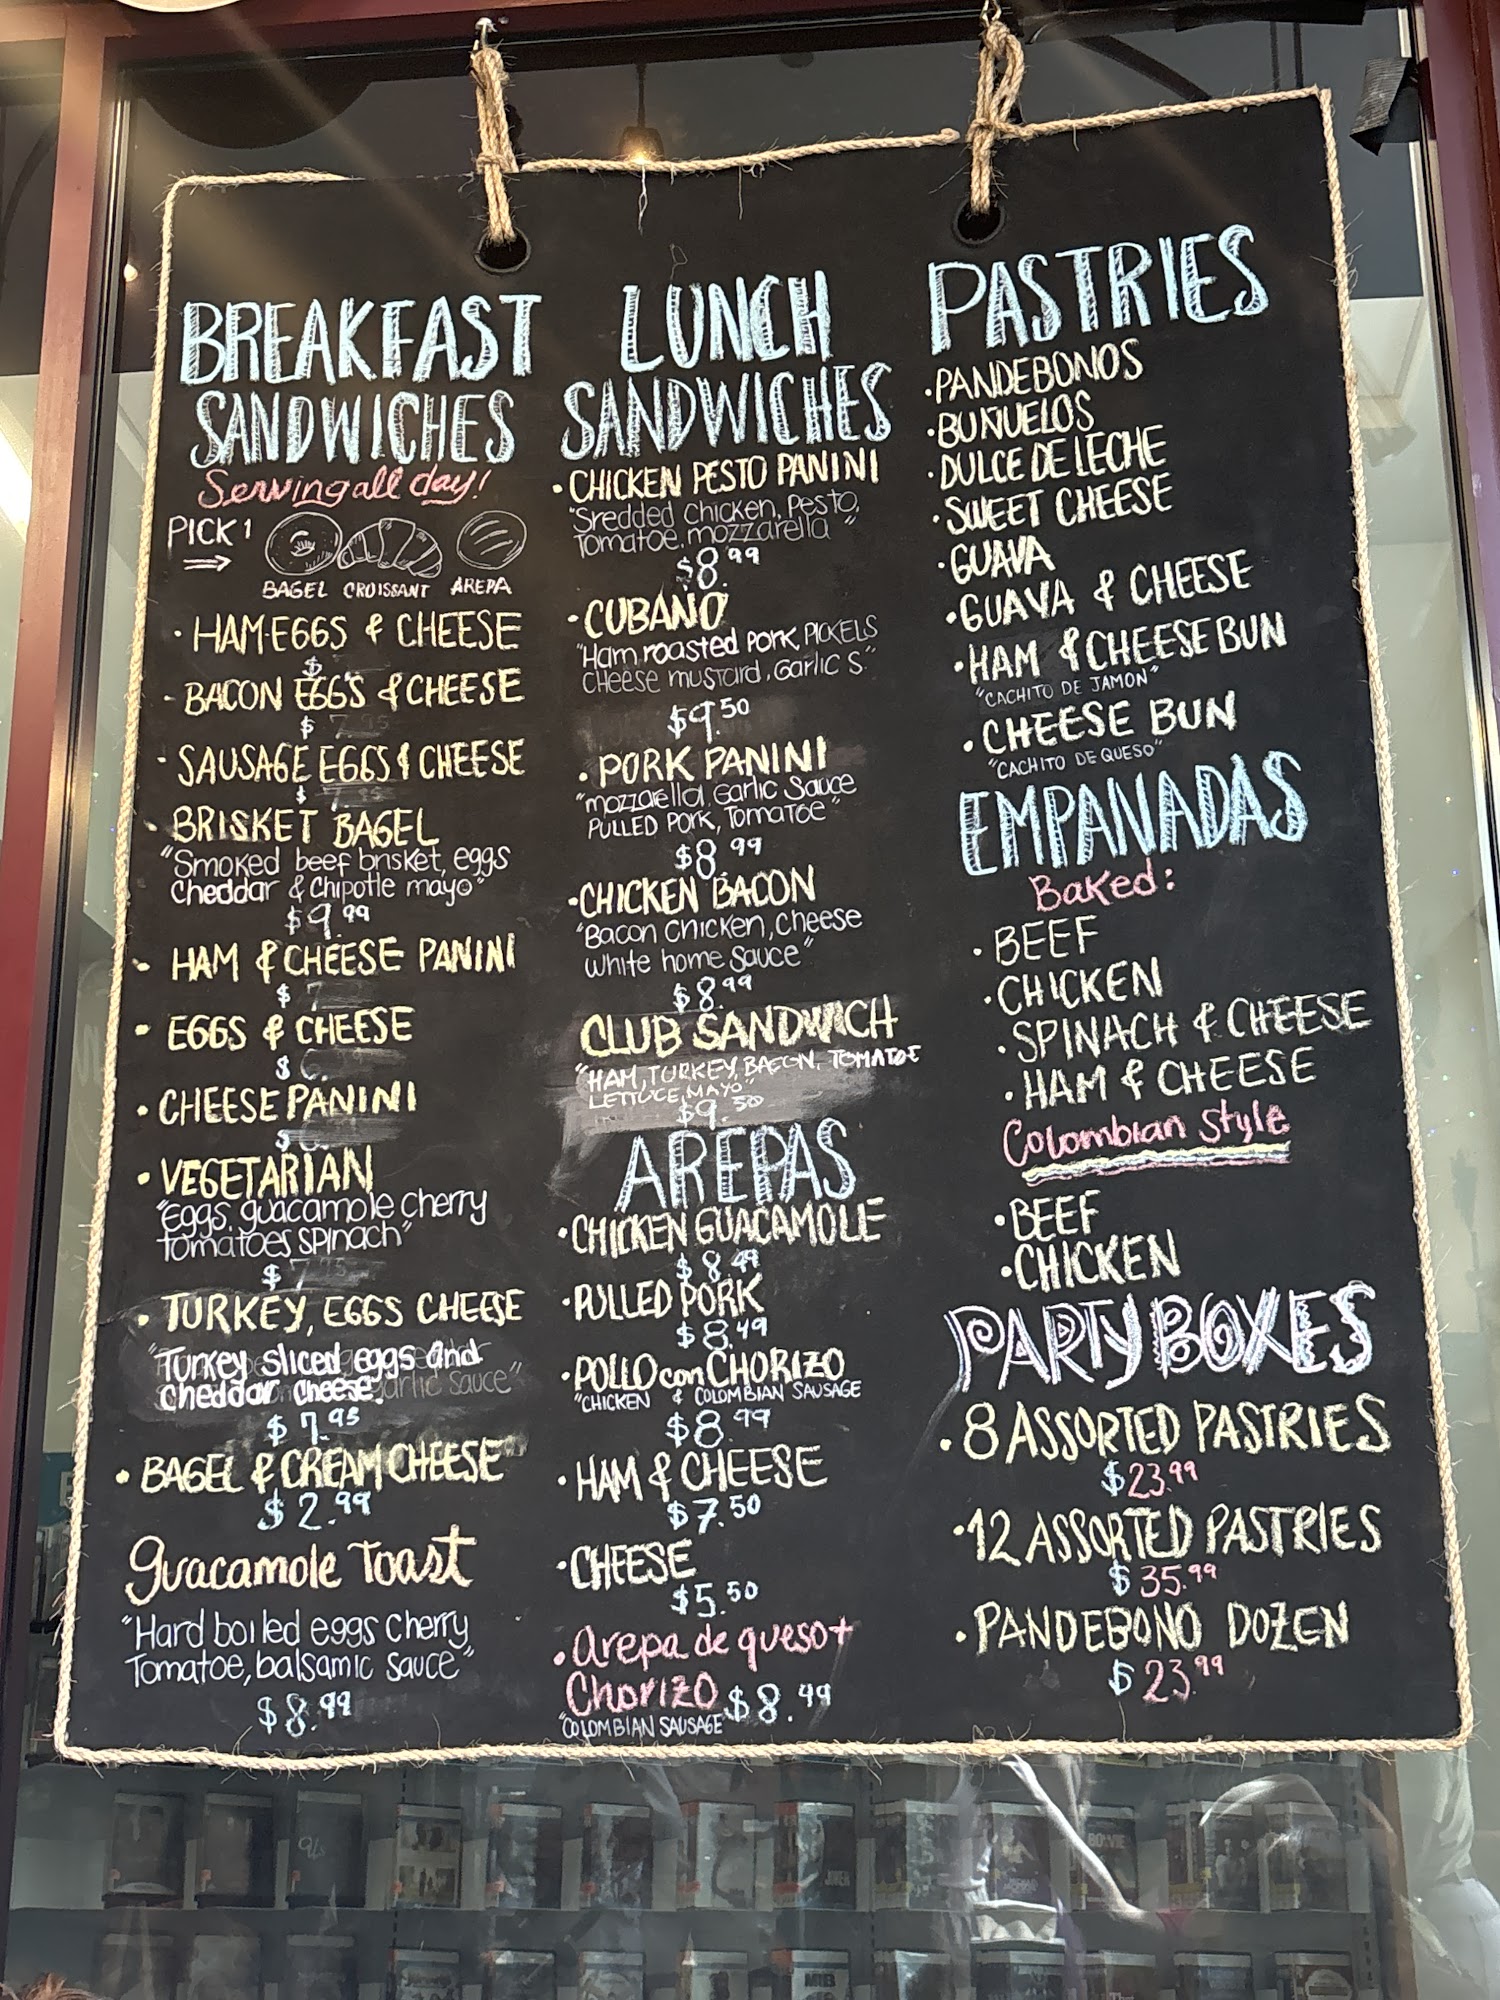 BREAKFAST
SANDWICHES
Serving all day!
PICK 1
BAGEL CROISSANT AREPA
· HAM·EGGS & CHEESE
$
· BACON EGGS & CHEESE
$ 7.95
· SAUSAGE EGGS & CHEESE
$ 7.95
· BRISKET BAGEL
"Smoked beef brisket, eggs
Cheddar & Chipotle mayo"
$9.99
· HAM & CHEESE PANINI
$ 7
· EGGS & CHEESE
$ 6.
· CHEESE PANINI
$ 6.
· VEGETARIAN
"Eggs, guacamole cherry
Tomatoes spinach"
$ 7.95
· TURKEY, EGGS CHEESE
"Turkey sliced eggs and
cheddar cheese." garlic sauce"
$ 7.95
· BAGEL & CREAM CHEESE
$ 2.99
guacamole Toast
"Hard boiled eggs cherry
Tomatoe, balsamic sauce"
$8.99
LUNCH
SANDWICHES
· CHICKEN PESTO PANINI
"Sredded chicken, Pesto,
Tomatoe, mozzarella"
$8.99
· CUBANO
"Ham roasted Pork, PICKELS
CHeese mustard, Garlic S."
$9.50
· PORK PANINI
"mozzarella, Garlic Sauce
PULLED PORK, Tomatoe"
$8.99
· CHICKEN BACON
"Bacon Chicken, Cheese
White home Sauce"
$8.99
CLUB SANDWICH
"HAM, TURKEY, BACON, TOMATOE
LETTUCE, MAYO"
$9.50
AREPAS
· CHICKEN GUACAMOLE
$8.49
· PULLED PORK
$8.49
· POLLO con CHORIZO
"CHICKEN & COLOMBIAN SAUSAGE
$8.99
· HAM & CHEESE
$7.50
· CHEESE
$5.50
· Arepa de queso+
Chorizo $8.49
"COLOMBIAN SAUSAGE"
PASTRIES
· PANDEBONOS
· BUÑUELOS
· DULCE DE LECHE
· SWEET CHEESE
· GUAVA
· GUAVA & CHEESE
· HAM & CHEESE BUN
"CACHITO DE JAMON"
· CHEESE BUN
"CACHITO DE QUESO"
EMPANADAS
Baked:
· BEEF
· CHICKEN
· SPINACH & CHEESE
· HAM & CHEESE
Colombian Style
· BEEF
· CHICKEN
PARTY BOXES
· 8 ASSORTED PASTRIES
$23.99
· 12 ASSORTED PASTRIES
$35.99
· PANDEBONO DOZEN
$23.99